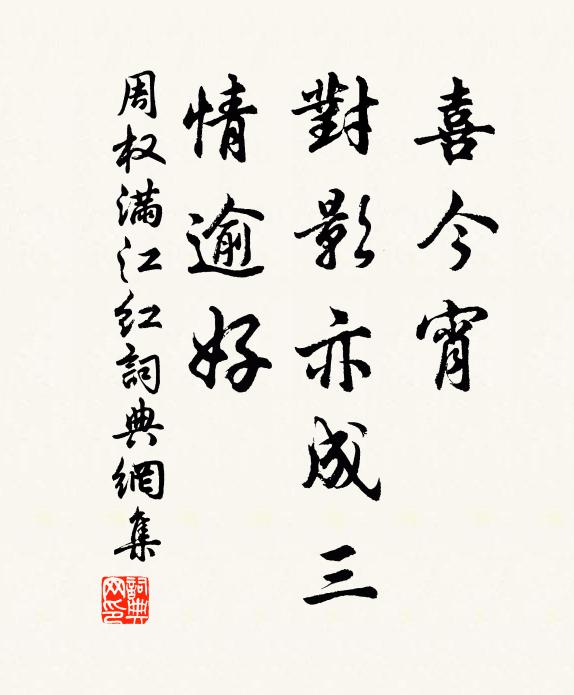 喜今宵
對影亦成三
情逾好
周权满江红詞典網集
詞典网印